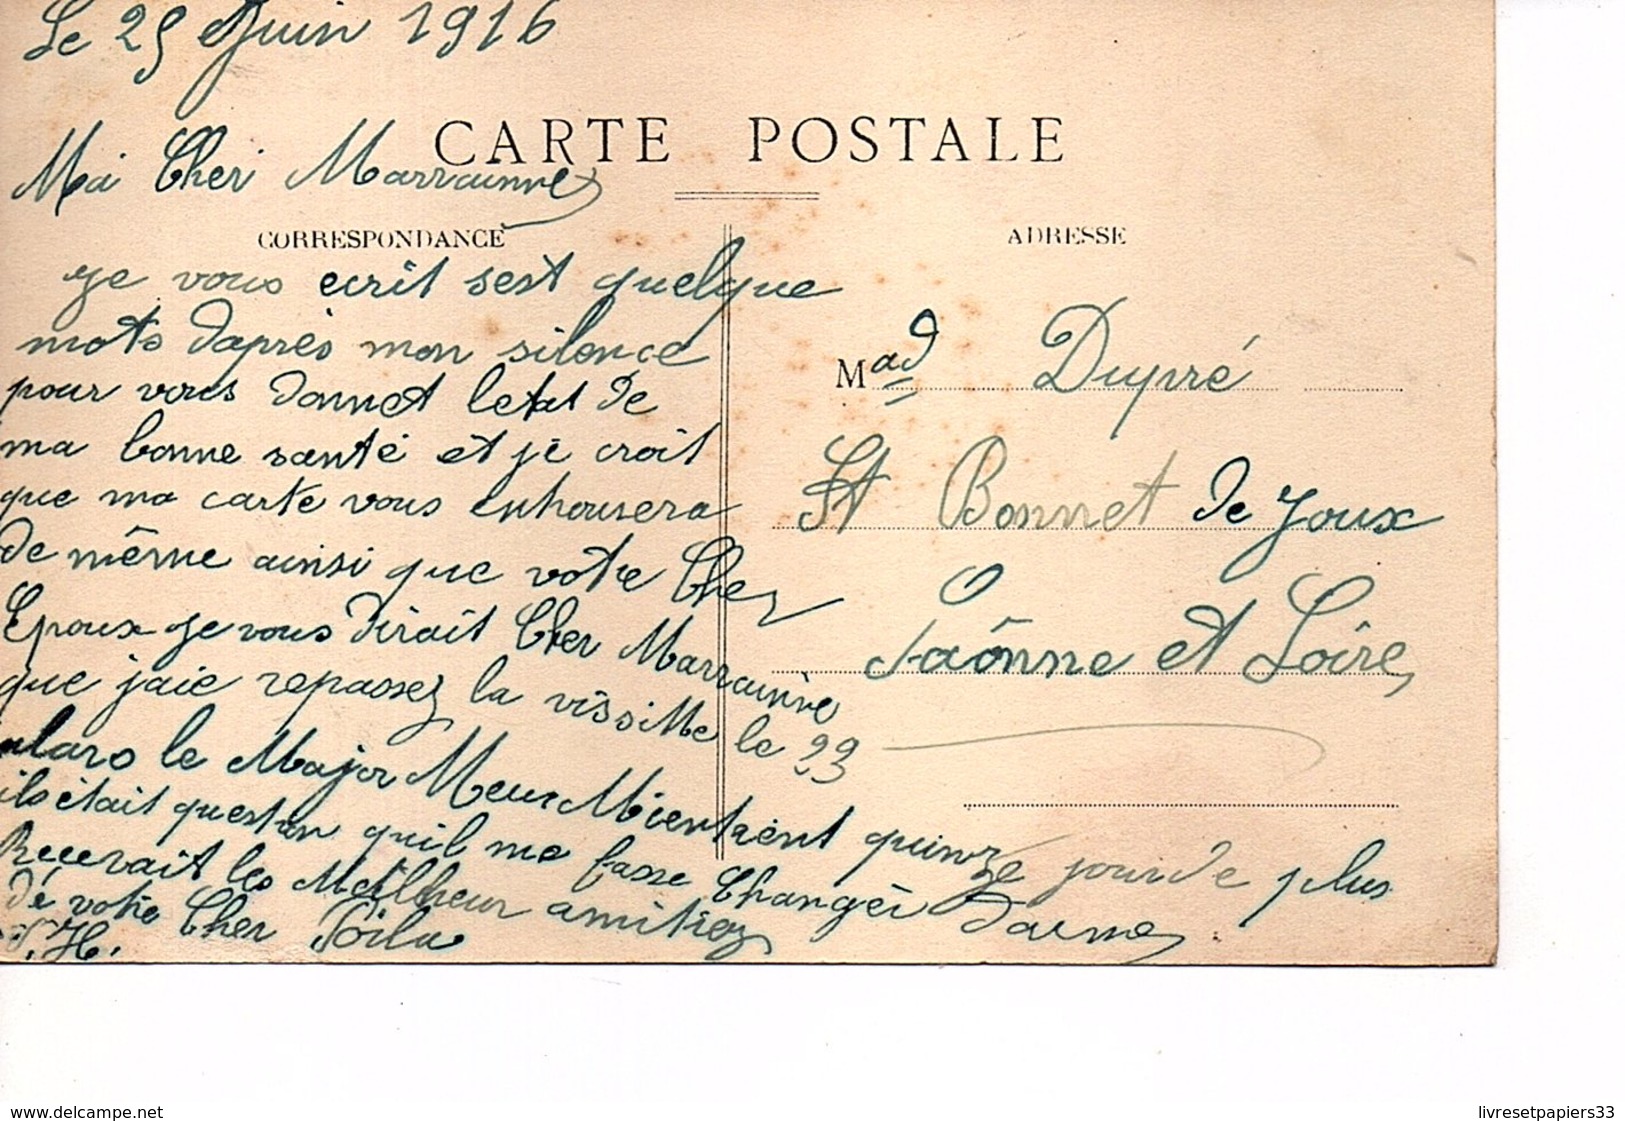 Le 25 Juin 1916
CARTE POSTALE
Ma Cher Marrainne
CORRESPONDANCE
je vous ecrit sest quelque
mots d'après mon silence
pour vous donnet letat de
ma bonne santé et je croit
que ma carte vous
de même ainsi que votre Cher
Epoux je vous dirait Cher Marrainne
que jaie repassez la vissitte le 23
alaro le Major Meux Mientient quinze jour de plus
ils était question quil me fasse changer darme
Recevait les Meilheur amitiez
dé votre Cher Poilu
H.
ADRESSE
Mad Dupré
St Bonnet de Joux
Saônne et Loire
delcampe.net
livresetpapiers33